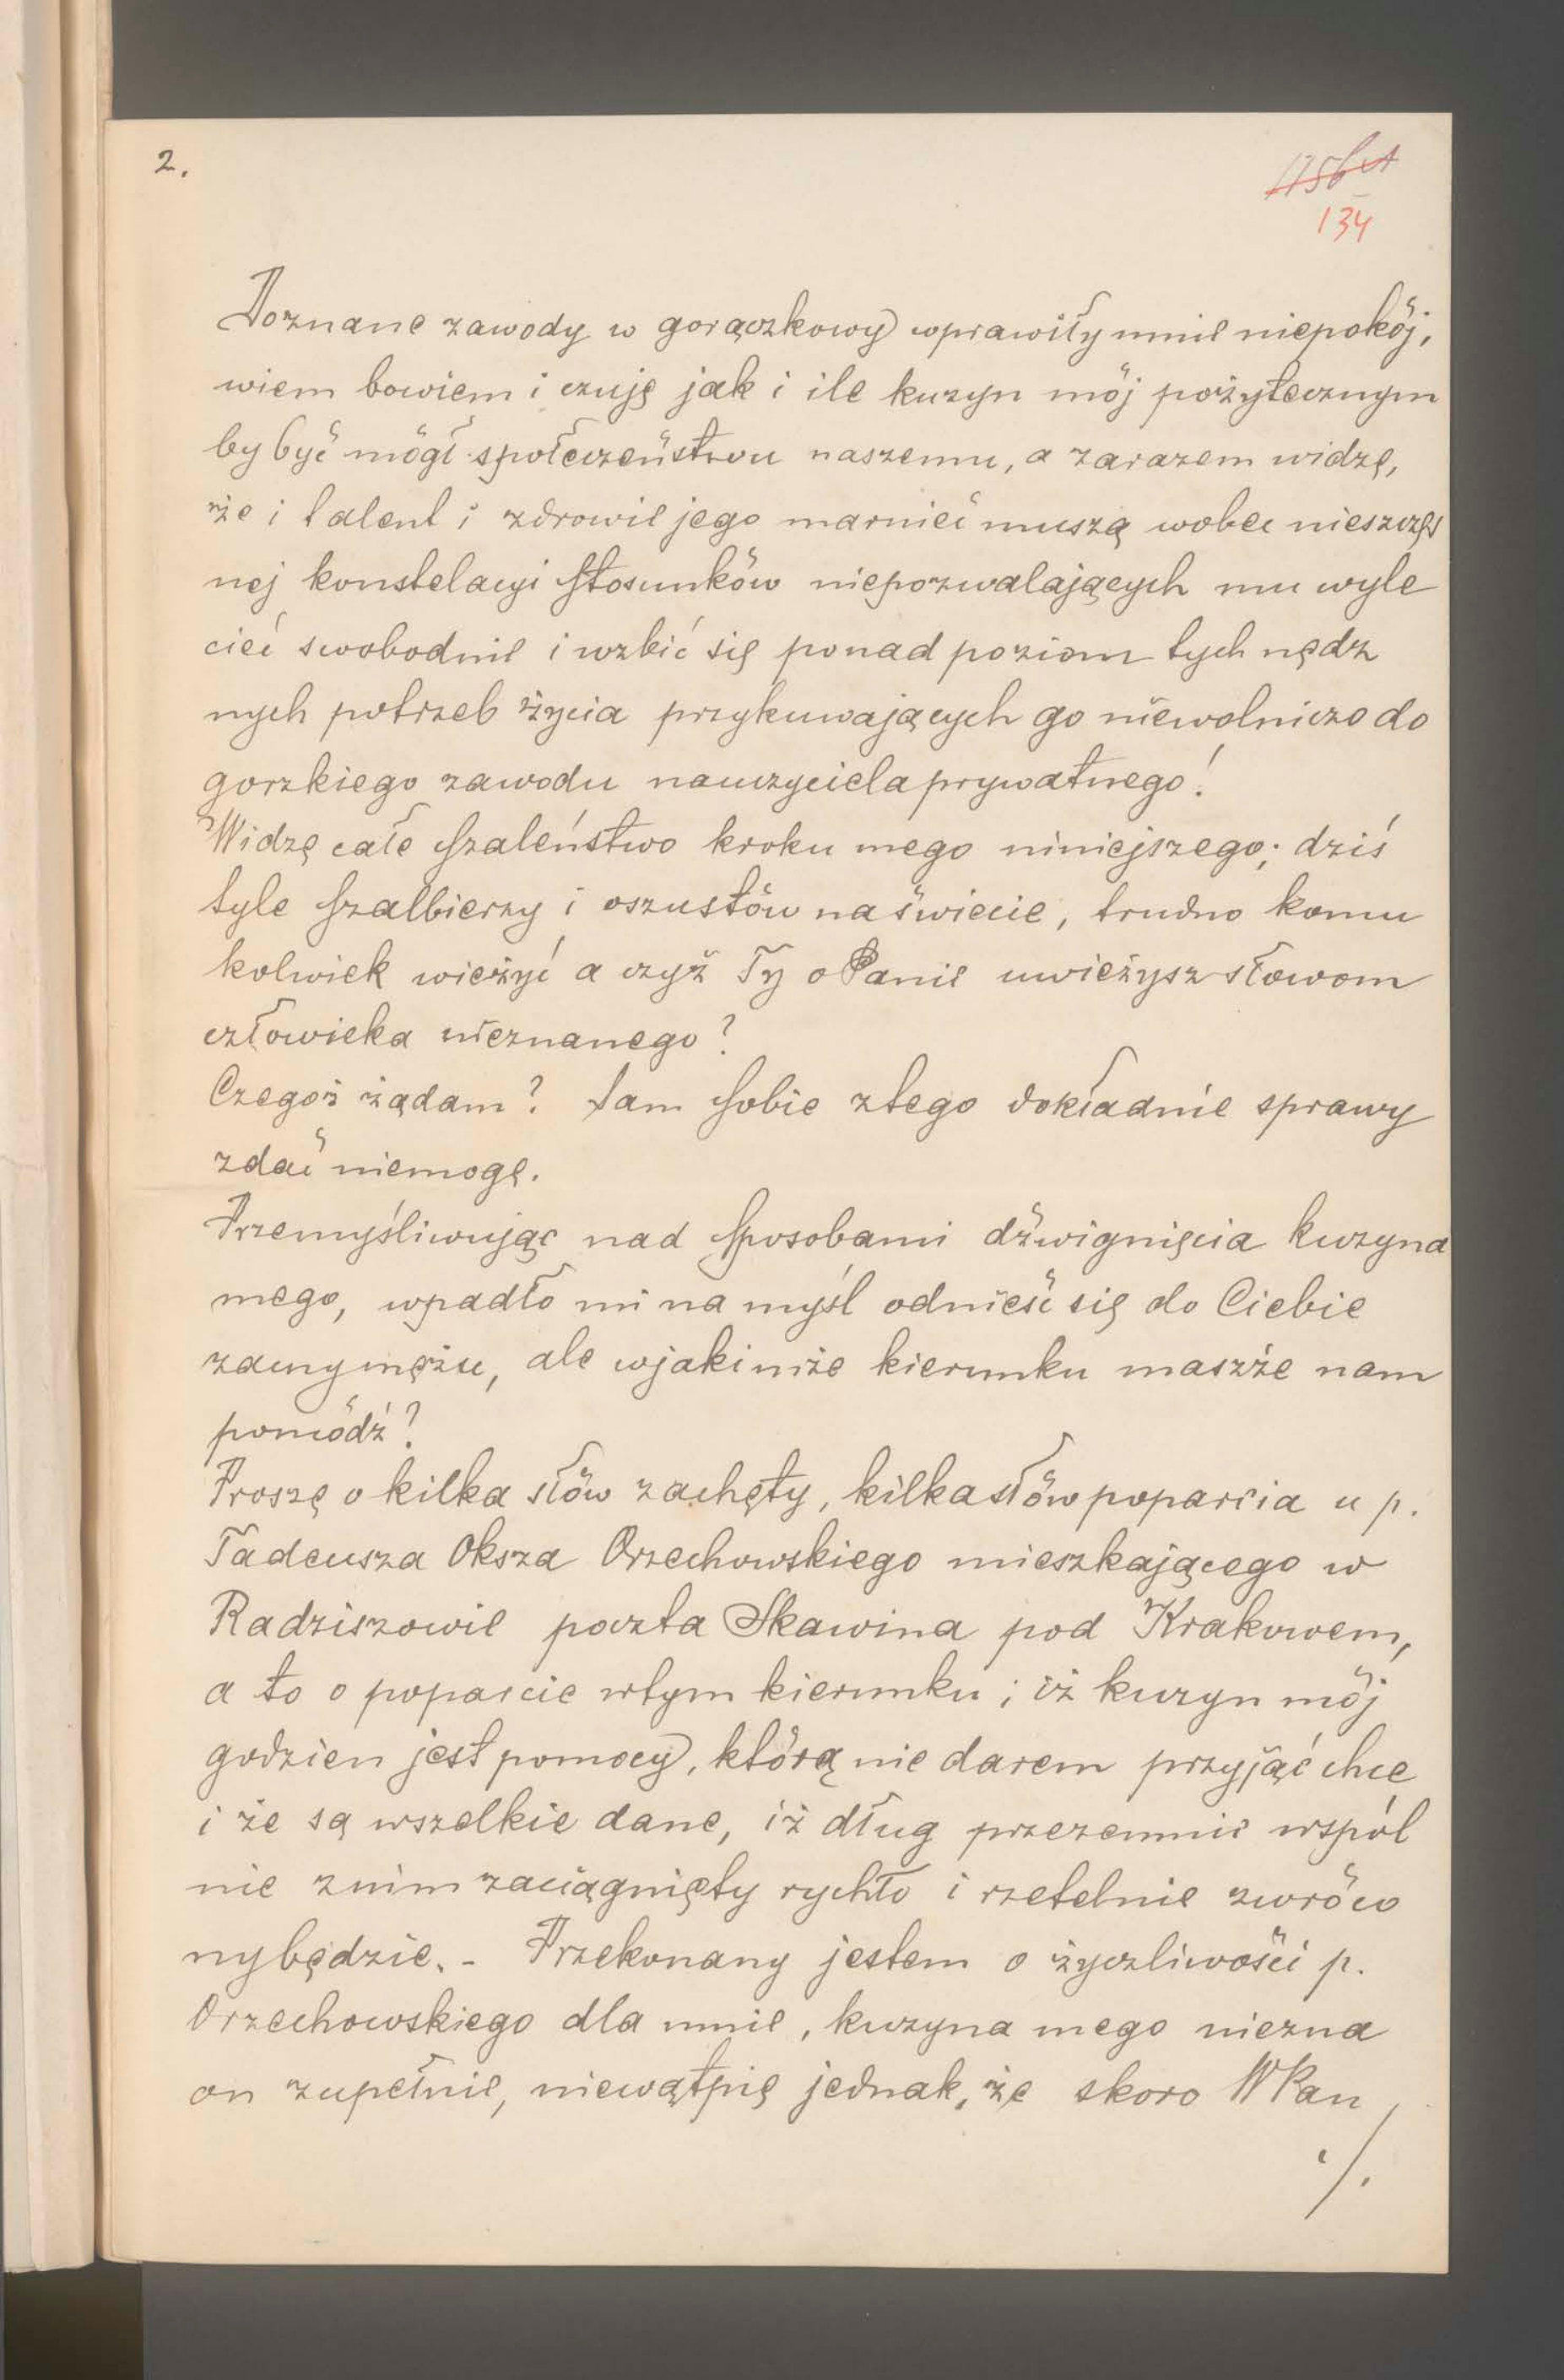 2.
175b A
134
Doznane zawody w gorączkowy wprawiły mnie niepokój,
wiem bowiem i czuję jak i ile kuzyn mój pożytecznym
by być mógł społeczeństwu naszemu, a zarazem widzę,
że i talent i zdrowie jego marnieć muszą wobec nieszczęs
nej konstelacyi stosunków niepozwalających mu wyle
cieć swobodnie i wzbić się ponad poziom tych nędz
nych potrzeb życia przykuwających go niewolniczo do
gorzkiego zawodu nauczyciela prywatnego!
Widzę całe szaleństwo kroku mego niniejszego; dziś
tyle szalbierzy i oszustów na świecie, trudno komu
kolwiek wieżyć a czyż Ty o Panie uwieżysz słowom
człowieka nieznanego?
Czegoż żądam? Sam sobie ztego dokładnie sprawy
zdać niemogę.
Przemyśliwując nad sposobami dźwignięcia kuzyna
mego, wpadło mi na myśl odnieść się do Ciebie
zacny mężu, ale wjakimże kierunku maszże nam
pomódź?
Proszę o kilka słów zachęty, kilka słów poparcia u p.
Tadeusza Oksza Orzechowskiego mieszkającego w
Radziszowie poczta Skawina pod Krakowem,
a to o poparcie wtym kierunku; iż kuzyn mój
godzien jest pomocy, którą nie darem przyjąć chce
i że są wszelkie dane, iż dług przezemnie wspól
nie znim zaciągnięty rychło i rzetelnie zwróco
nybędzie. - Przekonany jestem o życzliwości p.
Orzechowskiego dla mnie, kuzyna mego niezna
on zupełnie, niewątpię jednak, że skoro WPan
./.